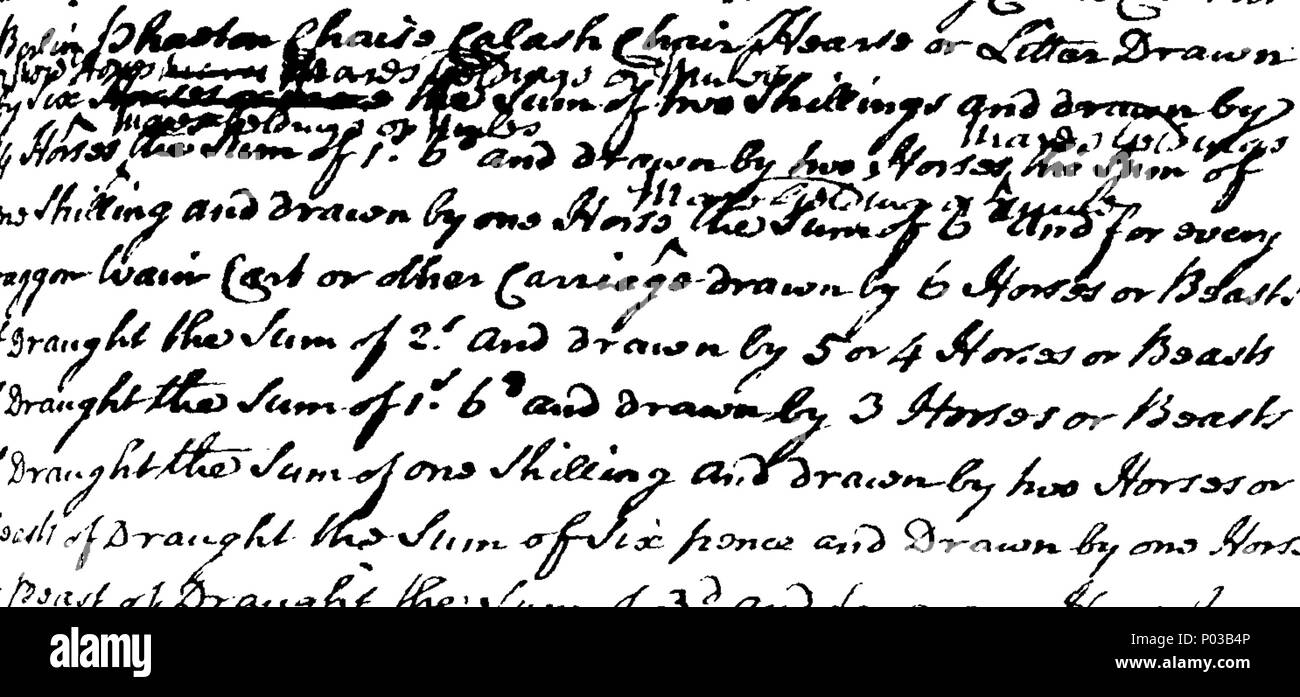 Berlin Phaeton Chaise Calash Chair Hearse or Litter Drawn
Horses Mares Geldings or Mules
by Six the Sum of two Shillings and drawn by
Mares Geldings or Mules
4 Horses the Sum of 1s. 6d and drawn by two Horses the Sum of
Mares Geldings
one Shilling and drawn by one Horse the Sum of 6d and for every
Mare Gelding or Mule
Waggon Wain Cart or other Carriage drawn by 6 Horses or Beasts
of Draught the Sum of 2s. and drawn by 5 or 4 Horses or Beasts
of Draught the Sum of 1s. 6d and drawn by 3 Horses or Beasts
of Draught the Sum of one Shilling and drawn by two Horses or
Beasts of Draught the Sum of Six pence and Drawn by one Horse
or Beast of Draught the Sum of 3d and for every
alamy
alamy
Image ID: P03B4P
www.alamy.com